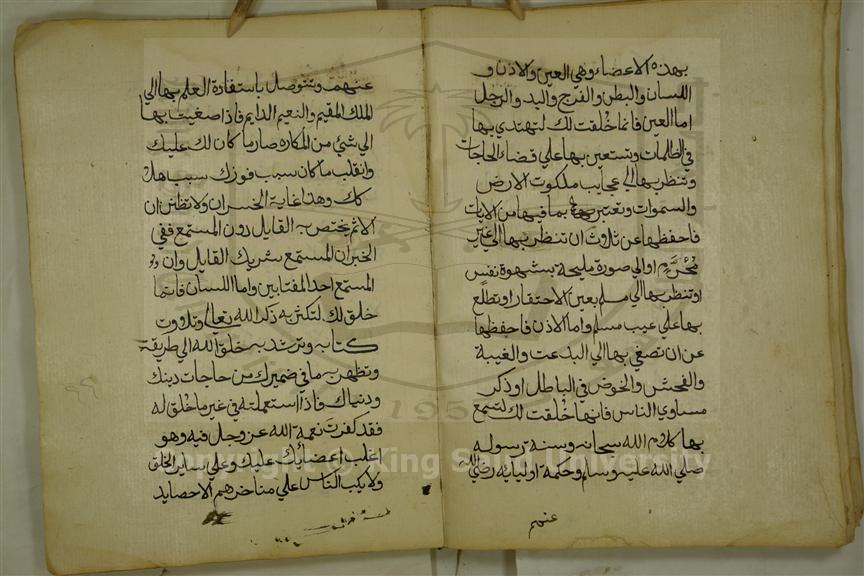 بهذه الاعضاء وهي العين والاذن و
اللسان والبطن والفرج واليد والرجل
اما العين فانما خُلقت لك لتهتدي بها
في الظلمات وتستعين بها علي قضاء الحاجات
وتنظر بها الي عجايب ملكوت الارض
والسموات وتعتبر بما فيها من الايات
فاحفظها عن ثلاث ان تنظر بها الي غير
مُحْرَمٍ او الي صورة مليحة بشهوة نفس
او تنظر بها الي مسلم بعين الاحتقار او تطلع
بها علي عيب مسلم واما الاذن فاحفظها
عن ان تصغي بها الي البدعت والغيبة
والفحش والخوض في الباطل او ذكر
مساوي الناس فانها خُلقت لك لتسمع
بها كلام الله سبحانه وسنة رسوله
صلي الله عليه وسلم وحكمة اوليايه رضي الله
عنهم
عنهم وتتوصل باستفادة العلم بها الي
الملك المقيم والنعيم الدايم فاذا صغيت بها
الي شئ من المكاره صار ما كان لك عليك
وانقلب ما كان سبب فوزك سبب هلا
كك وهذا غاية الخسران ولا تظن ان
الاثم يختص به القايل دون المستمع ففي
الخبر ان المستمع شريك القايل وان
المستمع احد المغتابين واما اللسان فانما
خلق لك لتكثر به ذكر الله تعالي وتلاوت
كتابه وترشد به خلق الله الي طريقه
وتظهر به ما في ضميرك من حاجات دينك
ودنياك فاذا استعملته في غير ما خُلق له
فقد كفرت نعمة الله عز وجل فيه وهو
اغلب اعضايك عليك وعلي ساير الخلق
ولا يكب الناس علي مناخرهم الا حصايد
1957
Copyright © King Saud University